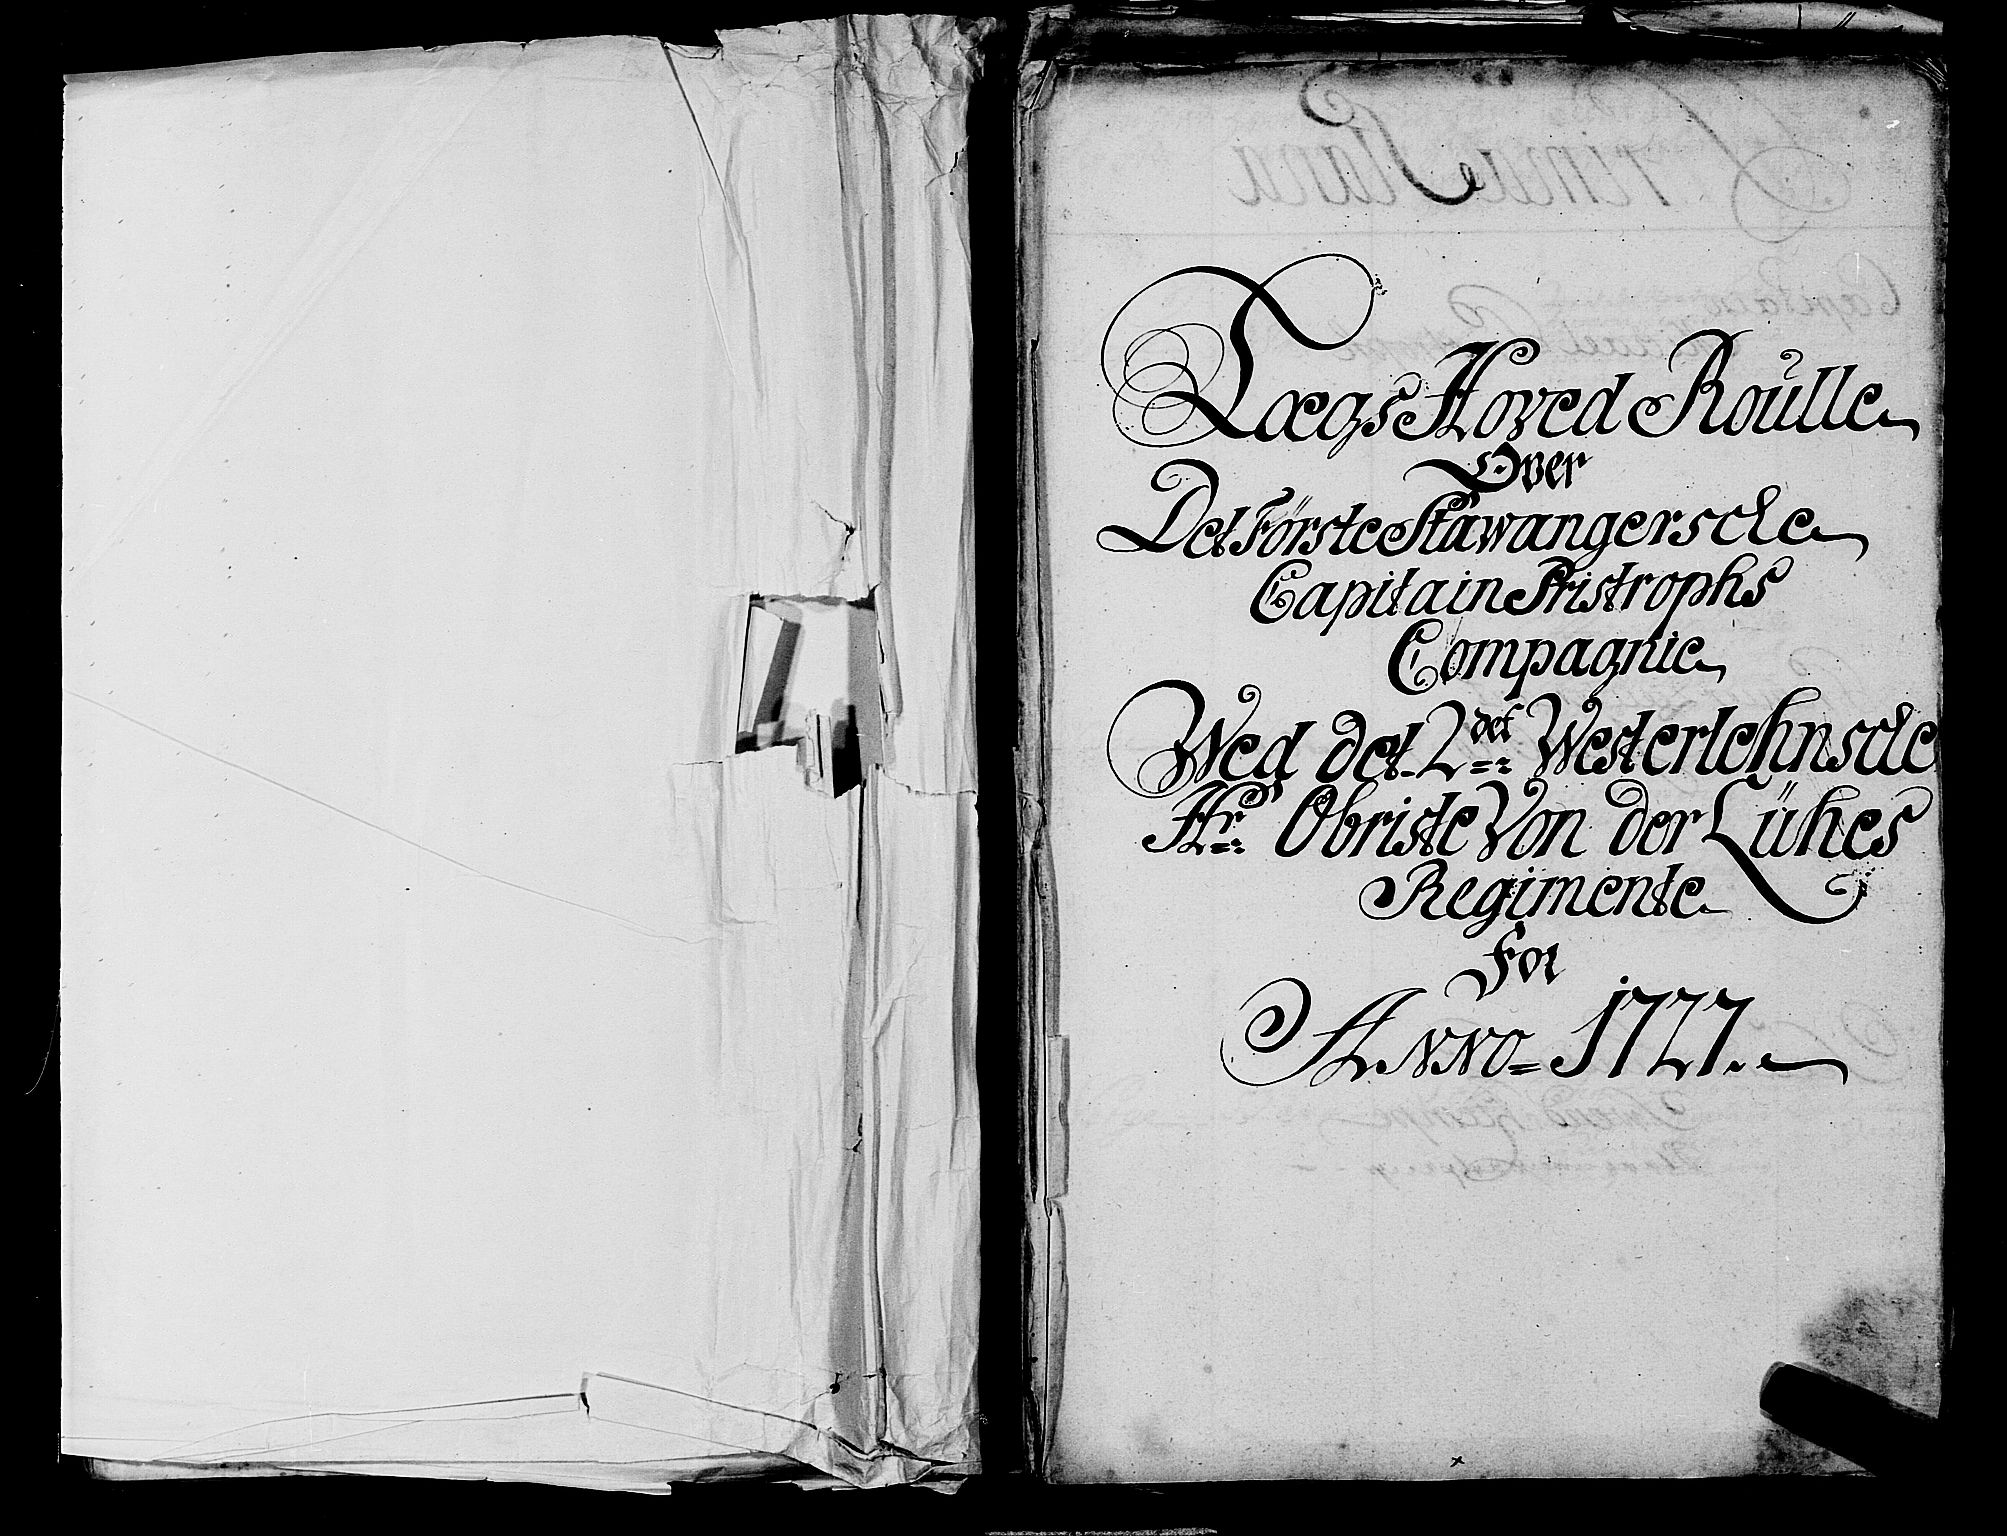 Lægs Hoved Roulle
Over
Det Förste Stawangersche
Capitain Pristrophs
Compagnie
Wed det 2det Westerlehnsche
Hr Obriste Von der Lühes
Regimente
For
Anno 1727.